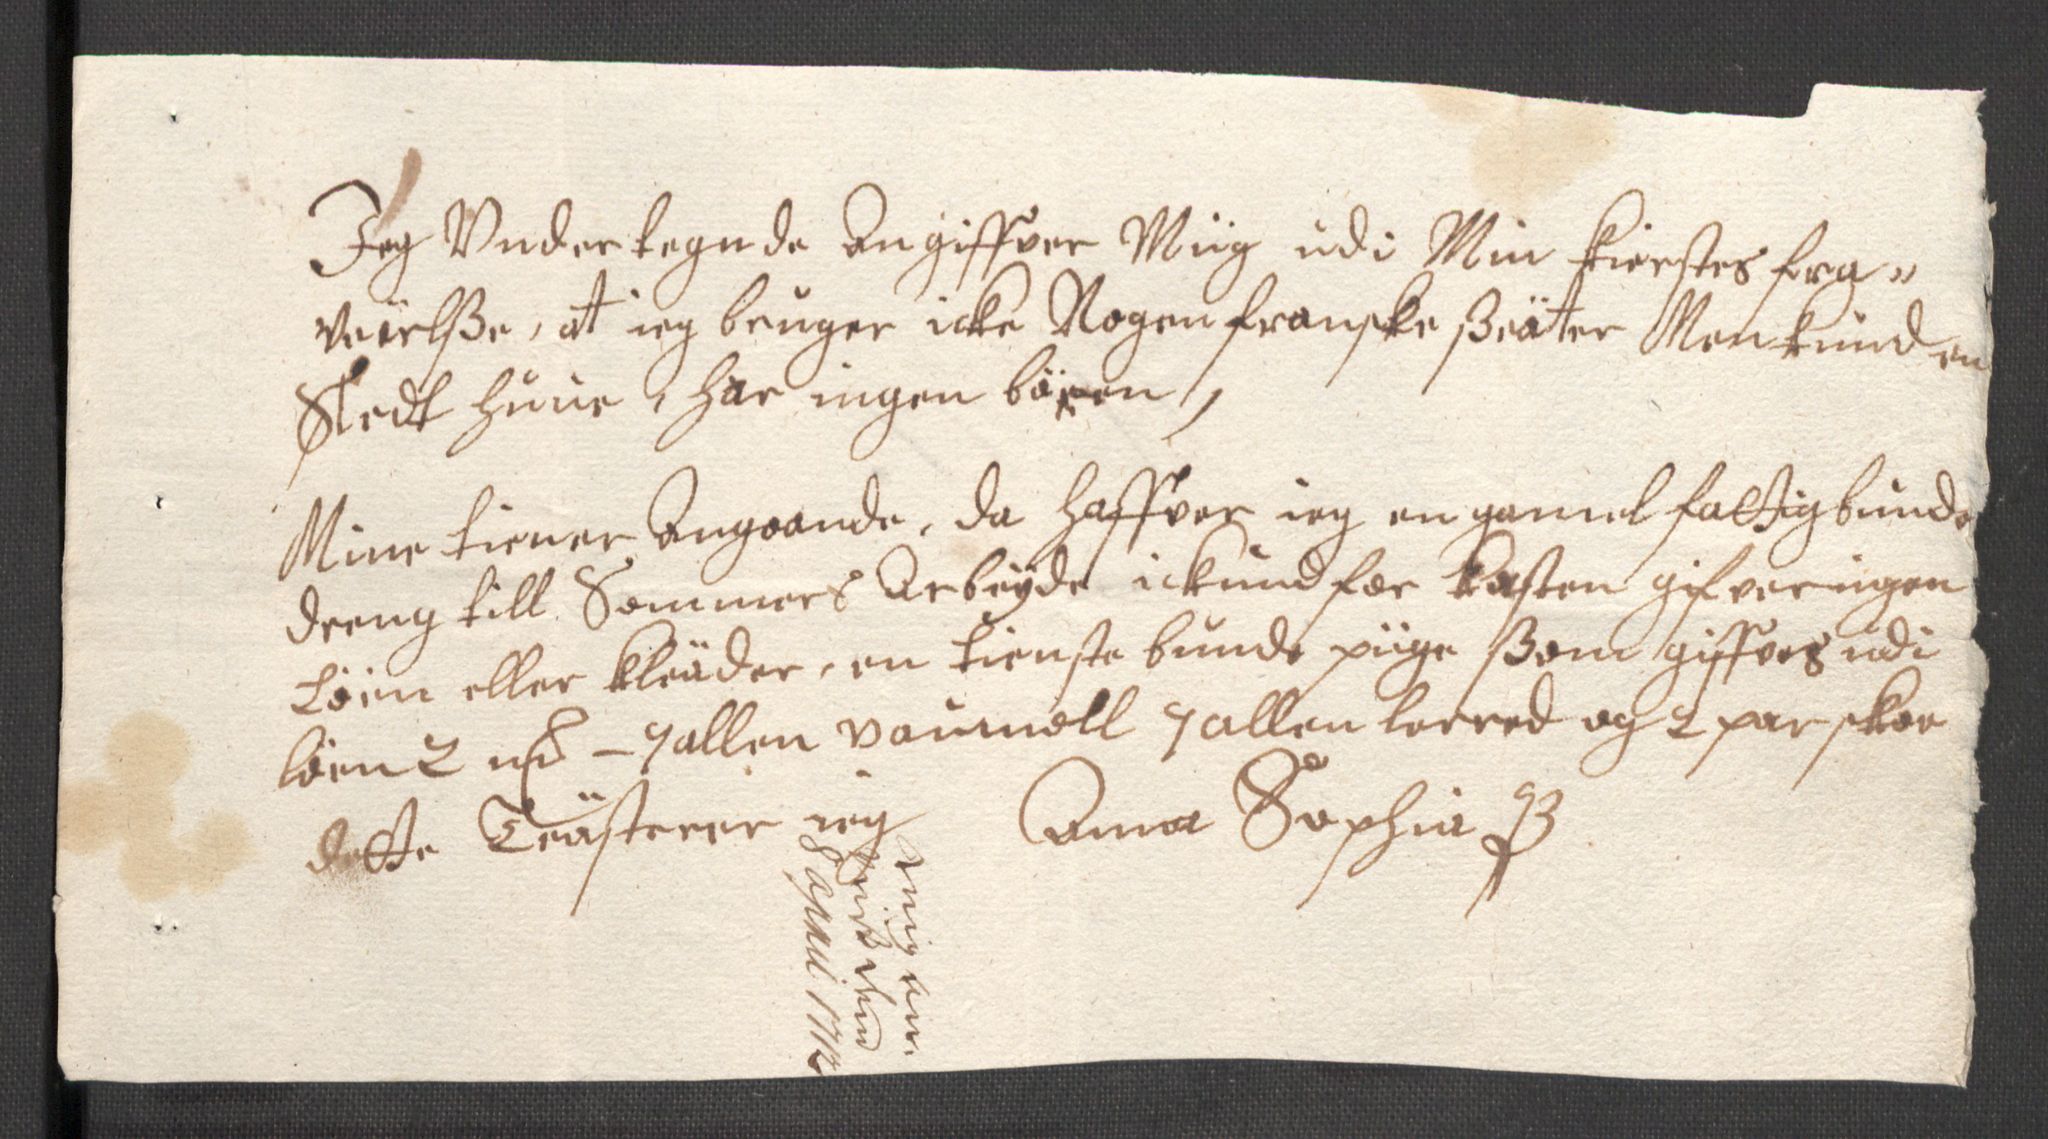 Jeg Vndertegnde Angiffver Miig udi Min kierstes fra„
veärlsße, at ieg bruger icke Nogen franske ßeäter Men kund en
Sledt huue, har ingen bören,
Mine tiener Angaande, da haffver ieg en gamel fattig bunde
dreng till Sommers Arbeyde ickund for kosten gifver ingen
löen eller kläder, en tieneste bunde piige ßom giffves udi
löen 2 rdr – 7 allen vaumell 7 allen lerred og 2 par skoe
dette Teästerer ieg Anna Sophia
april 1712